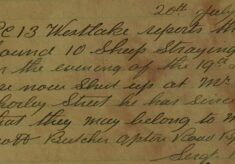 20th July
PC 13 Westlake reports th
found 10 Sheep Straying
on the evening of the 19th
are now Shut up at Mr
Street he has since
that they may belong to M
Butcher Upton Road
Sergt